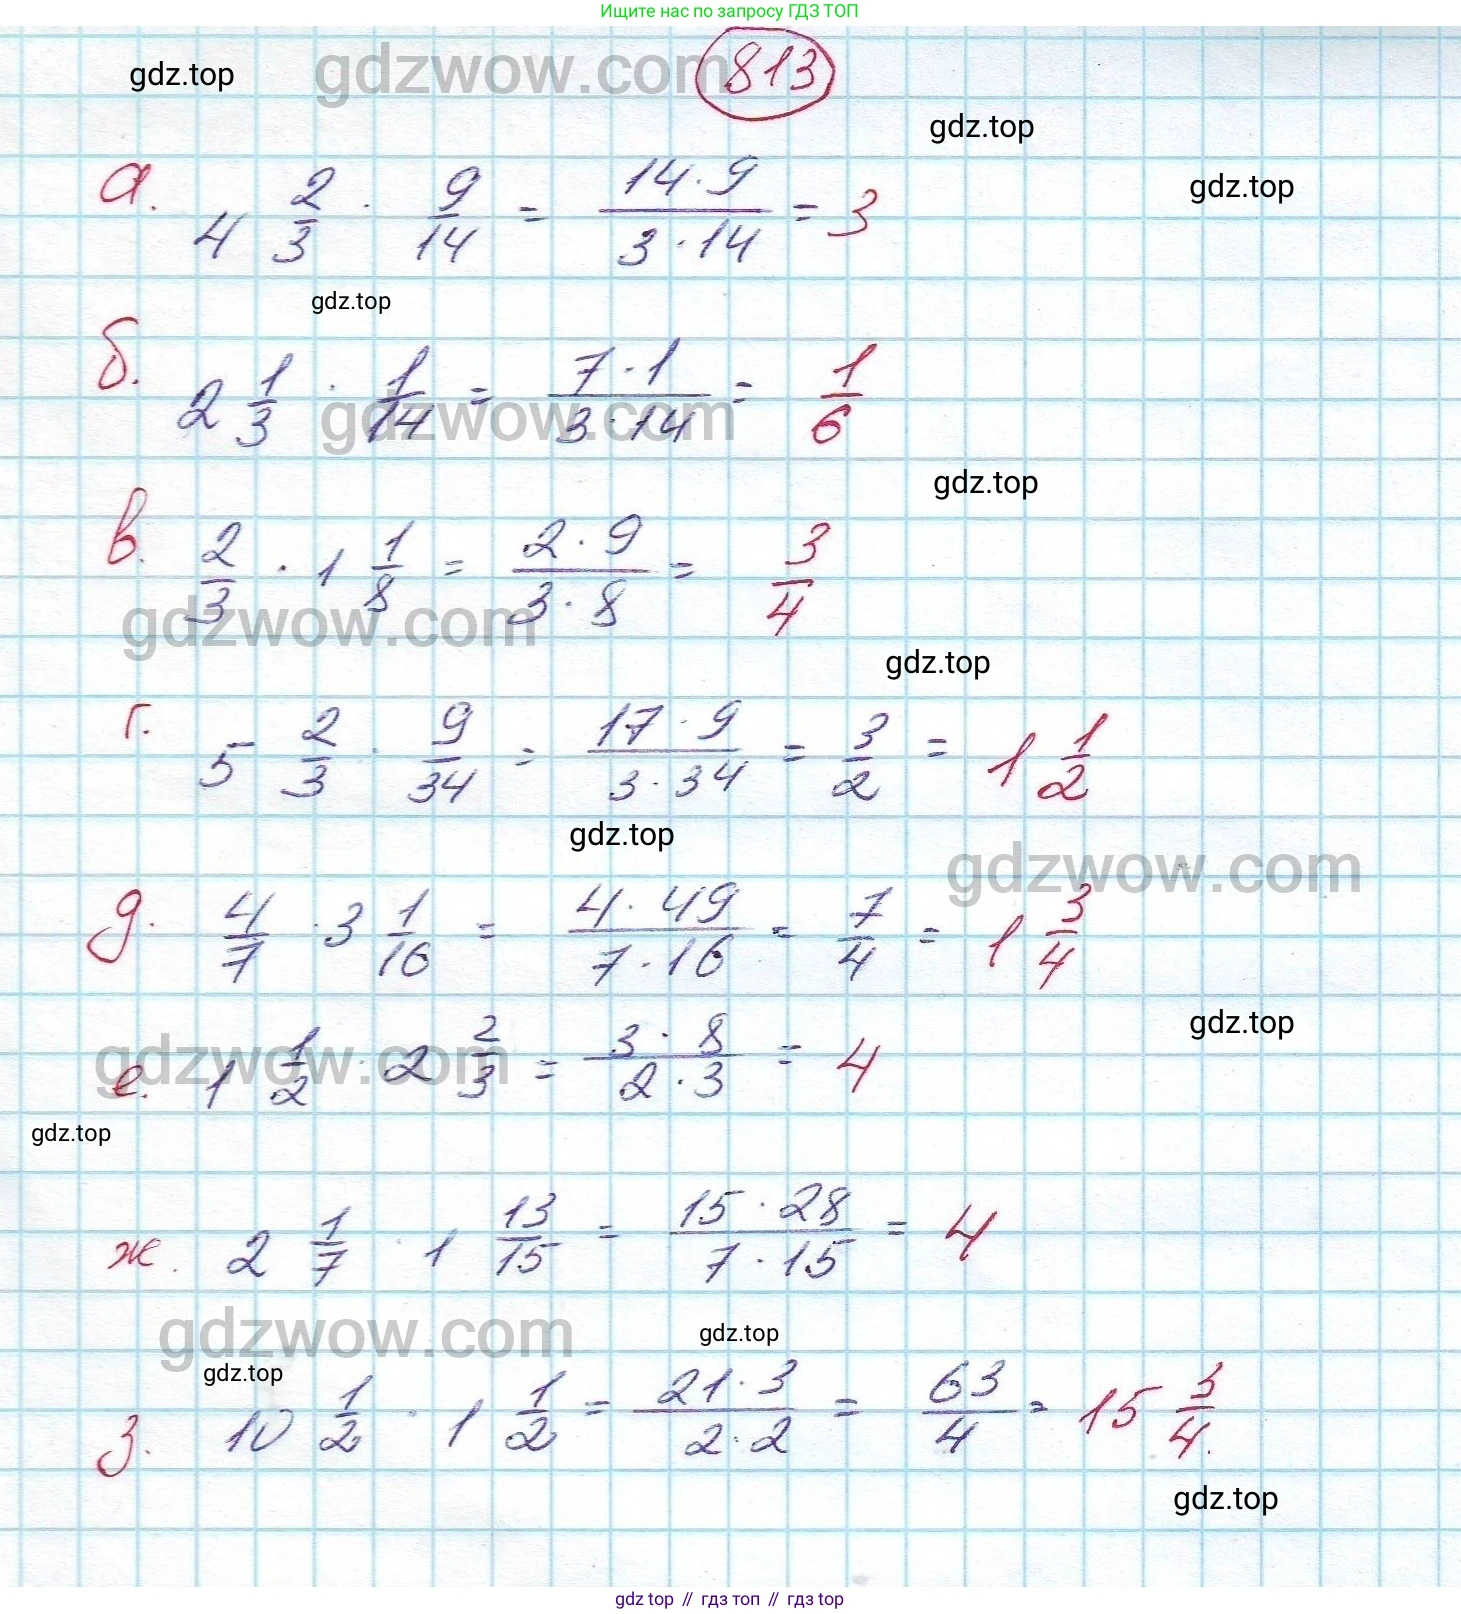 Ищите нас по запросу ГДЗ ТОП
gdz.top gdzwow.com 813
gdz.top
gdz.top
а. 4 2/3 · 9/14 = (14 · 9)/(3 · 14) = 3
gdz.top
б. 2 1/3 · 1/14 = (7 · 1)/(3 · 14) = 1/6
gdzwow.com
gdz.top
в. 2/3 · 1 1/8 = (2 · 9)/(3 · 8) = 3/4
gdzwow.com
gdz.top
г. 5 2/3 · 9/34 = (17 · 9)/(3 · 34) = 3/2 = 1 1/2
gdz.top
gdzwow.com
д. 4/7 · 3 1/16 = (4 · 49)/(7 · 16) = 7/4 = 1 3/4
gdz.top
gdzwow.com
е. 1 1/2 · 2 2/3 = (3 · 8)/(2 · 3) = 4
gdz.top
ж. 2 1/7 · 1 13/15 = (15 · 28)/(7 · 15) = 4
gdzwow.com gdz.top
gdz.top
з. 10 1/2 · 1 1/2 = (21 · 3)/(2 · 2) = 63/4 = 15 3/4.
gdz.top
gdz top // гдз топ // гдз top